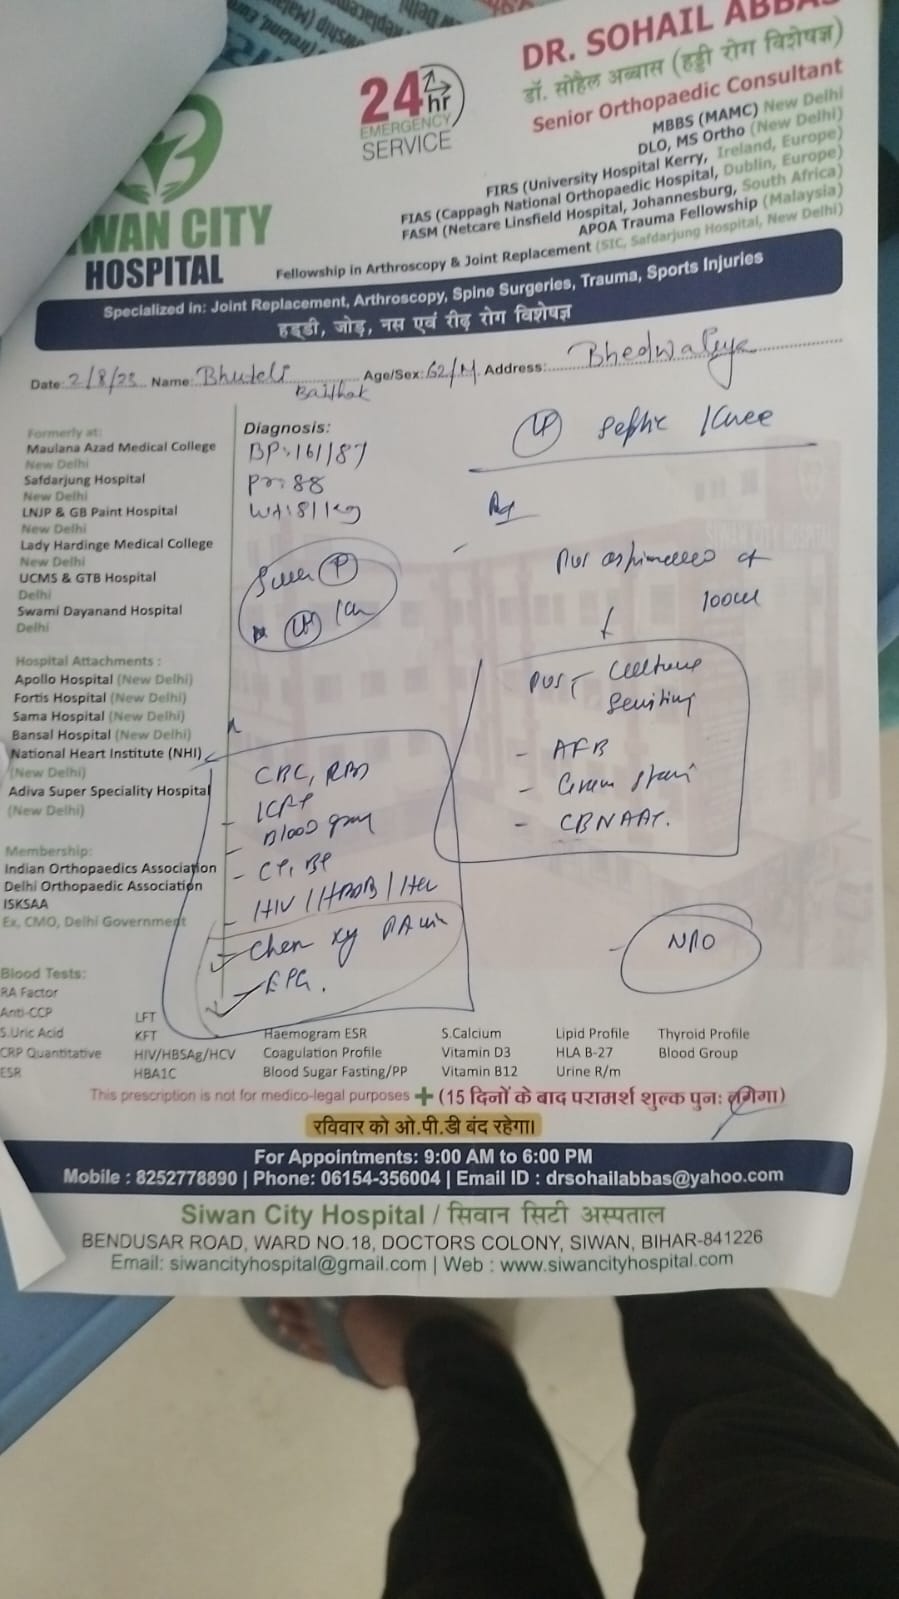 DR. SOHAIL ABBAS
डॉ. सोहैल अब्बास (हड्डी रोग विशेषज्ञ)
Senior Orthopaedic Consultant
MBBS (MAMC) New Delhi
DLO, MS Ortho (New Delhi)
FIRS (University Hospital Kerry, Ireland, Europe)
FIAS (Cappagh National Orthopaedic Hospital, Dublin, Europe)
FASM (Netcare Linsfield Hospital, Johannesburg, South Africa)
APOA Trauma Fellowship (Malaysia)
Fellowship in Arthroscopy & Joint Replacement (SIC, Safdarjung Hospital, New Delhi)
24 hr
EMERGENCY
SERVICE
WAN CITY
HOSPITAL
Specialized in: Joint Replacement, Arthroscopy, Spine Surgeries, Trauma, Sports Injuries
हड्डी, जोड़, नस एवं रीढ़ रोग विशेषज्ञ
Date: 2/8/23 Name: Bhuteli Age/Sex: 62/M Address:
Baithak
Diagnosis:
BP:161/87
Pr:88
Wt:81kg
Septic Knee
Pus
100ml
Pus Culture
AFB
Gram stain
CBNAAT.
NPO
CBC, RBS
Blood group
Formerly at:
Maulana Azad Medical College
New Delhi
Safdarjung Hospital
New Delhi
LNJP & GB Paint Hospital
New Delhi
Lady Hardinge Medical College
New Delhi
UCMS & GTB Hospital
Delhi
Swami Dayanand Hospital
Delhi
Hospital Attachments :
Apollo Hospital (New Delhi)
Fortis Hospital (New Delhi)
Sama Hospital (New Delhi)
Bansal Hospital (New Delhi)
National Heart Institute (NHI)
(New Delhi)
Adiva Super Speciality Hospital
(New Delhi)
Membership:
Indian Orthopaedics Association
Delhi Orthopaedic Association
ISKSAA
Ex, CMO, Delhi Government
Blood Tests:
RA Factor
Anti-CCP LFT
S.Uric Acid KFT Haemogram ESR S.Calcium Lipid Profile Thyroid Profile
CRP Quantitative HIV/HBSAg/HCV Coagulation Profile Vitamin D3 HLA B-27 Blood Group
ESR HBA1C Blood Sugar Fasting/PP Vitamin B12 Urine R/m
This prescription is not for medico-legal purposes + (15 दिनों के बाद परामर्श शुल्क पुनः लगेगा)
रविवार को ओ.पी.डी बंद रहेगा।
For Appointments: 9:00 AM to 6:00 PM
Mobile : 8252778890 | Phone: 06154-356004 | Email ID : drsohailabbas@yahoo.com
Siwan City Hospital / सिवान सिटी अस्पताल
BENDUSAR ROAD, WARD NO.18, DOCTORS COLONY, SIWAN, BIHAR-841226
Email: siwancityhospital@gmail.com | Web : www.siwancityhospital.com